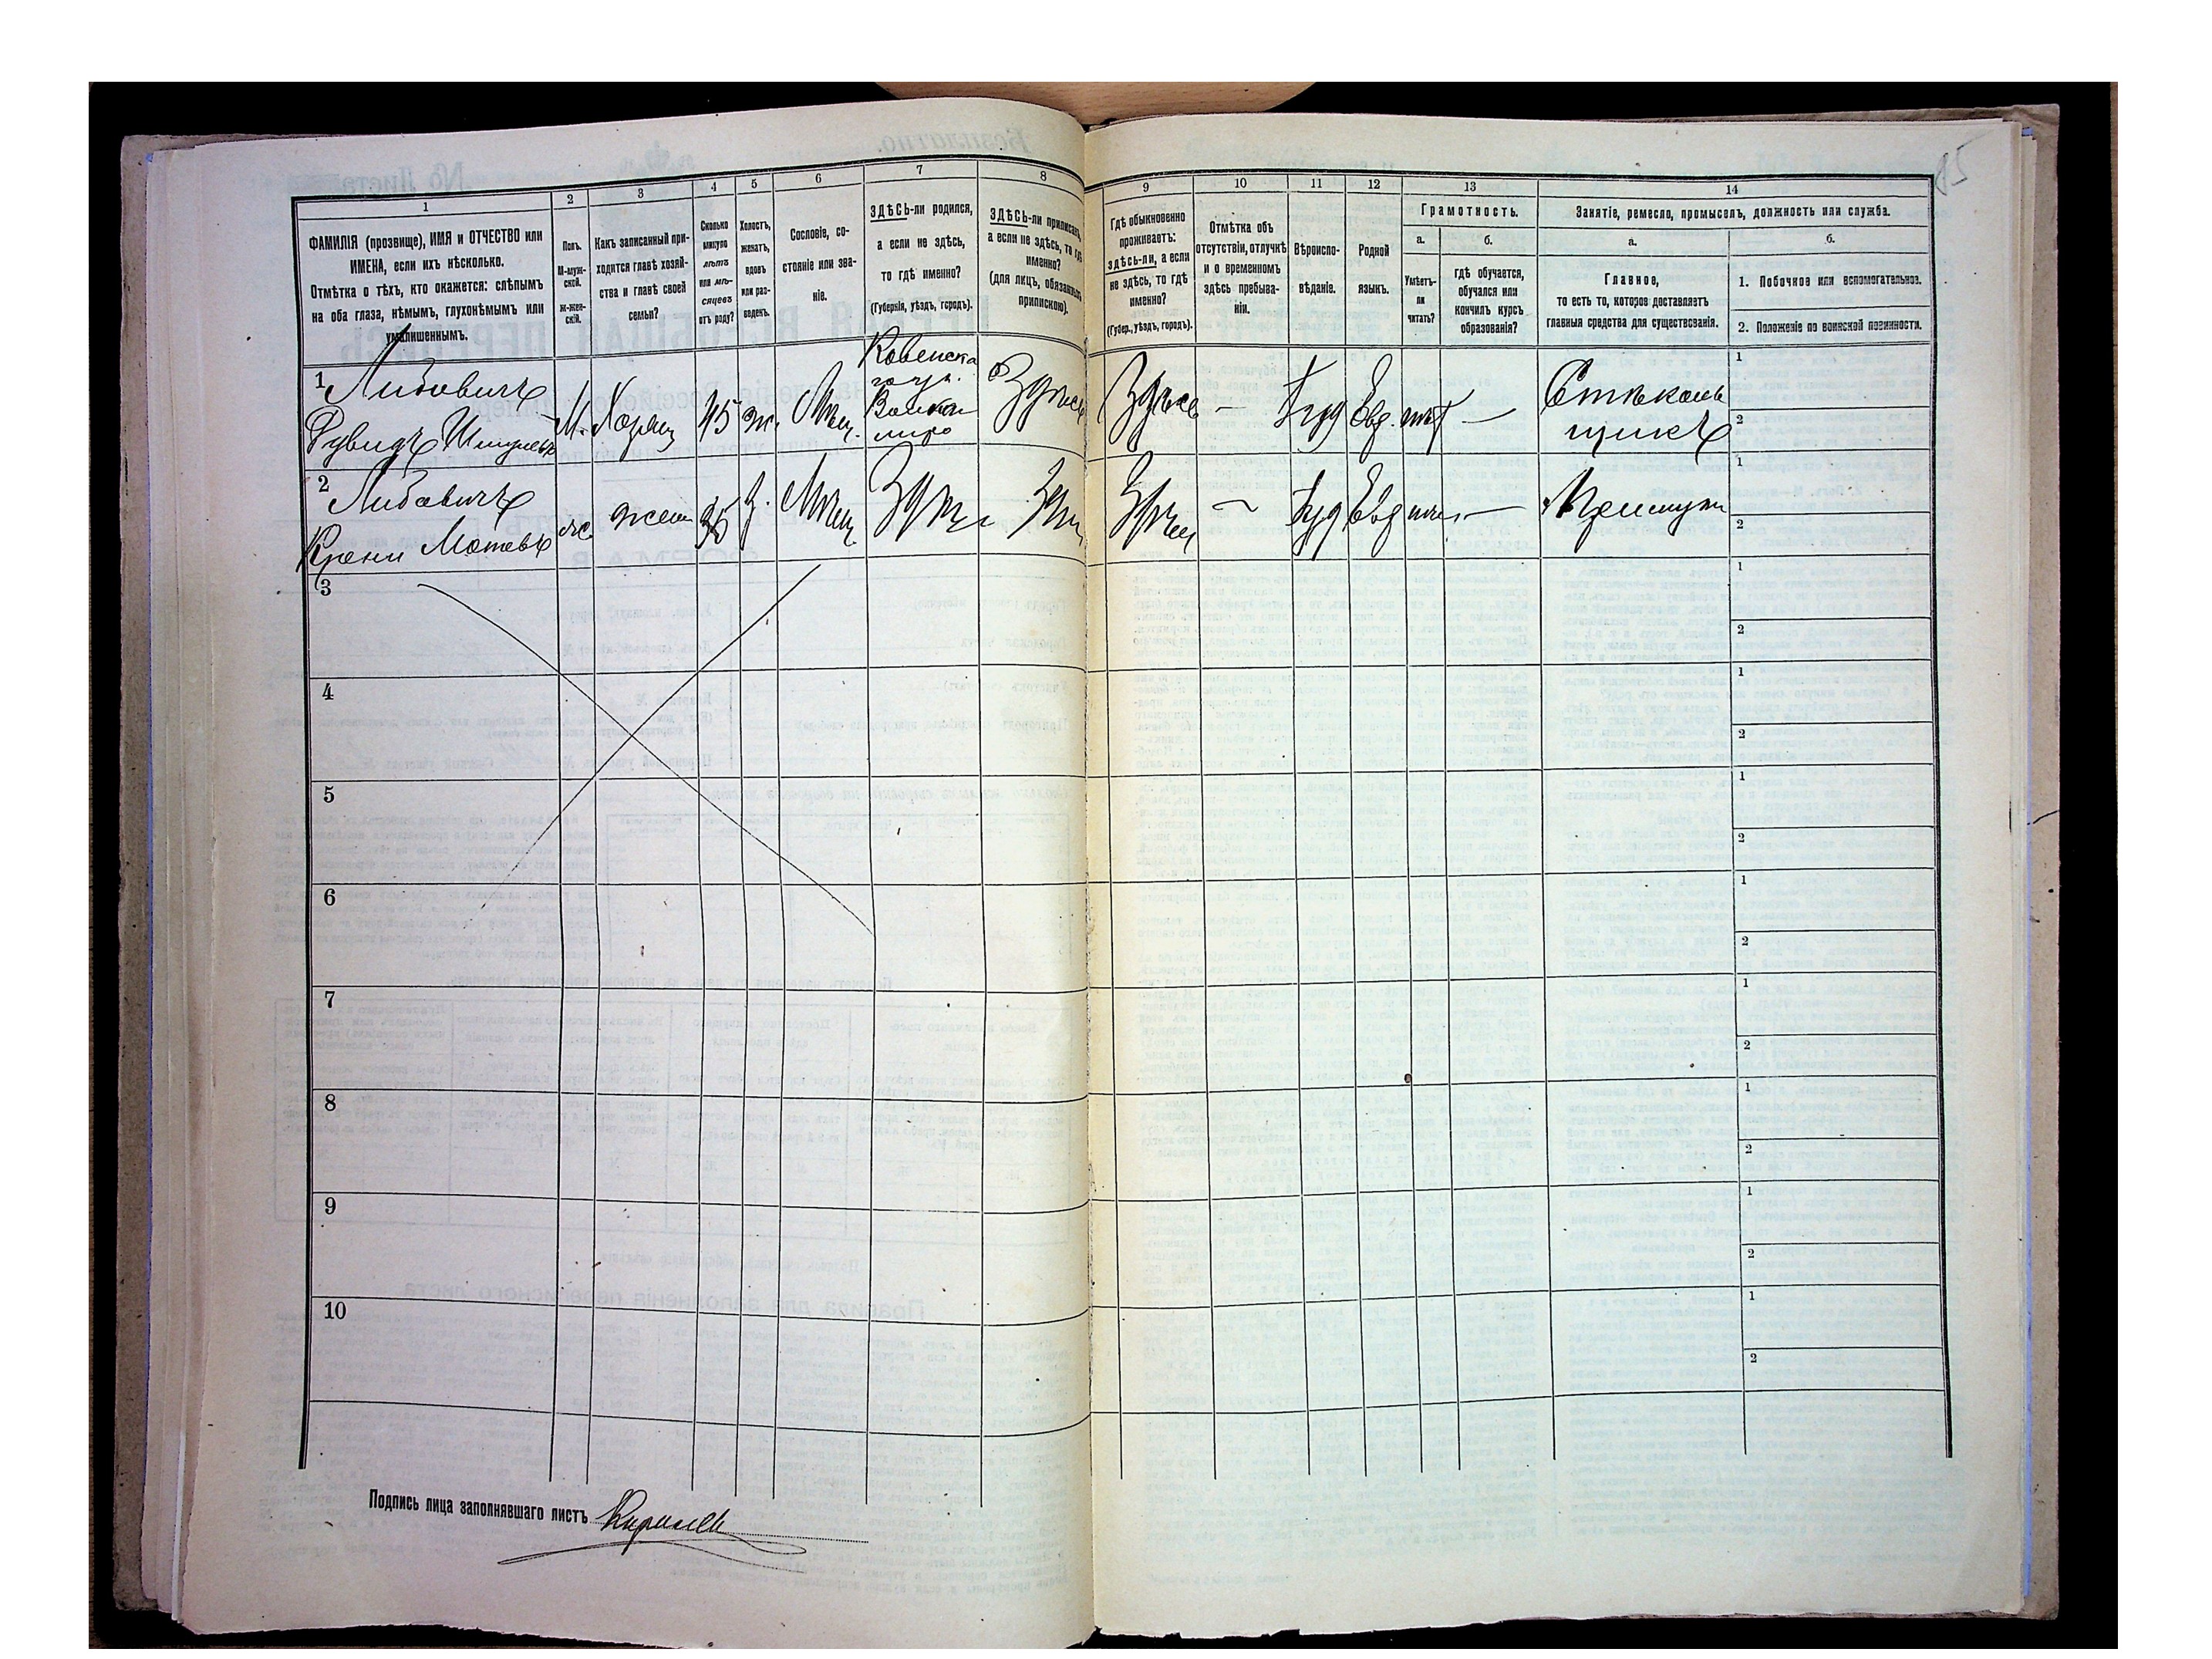 1 2 3 4 5 6 7 8 9 10 11 12 13 14
ФАМИЛІЯ (прозвище), ИМЯ и ОТЧЕСТВО или
ИМЕНА, если ихъ нѣсколько.
Отмѣтка о тѣхъ, кто окажется: слѣпымъ
на оба глаза, нѣмымъ, глухонѣмымъ или
умалишеннымъ.
Полъ.
М-муж-
ской.
Ж-жен-
скій.
Какъ записанный при-
ходится главѣ хозяй-
ства и главѣ своей
семьи?
Сколько
минуло
лѣтъ
или мѣ-
сяцевъ
отъ роду?
Холостъ,
женатъ,
вдовъ
или раз-
веденъ.
Сословіе, со-
стояніе или зва-
ніе.
ЗДѢСЬ-ли родился,
а если не здѣсь,
то гдѣ именно?
(Губернія, уѣздъ, городъ).
ЗДѢСЬ-ли приписанъ,
а если не здѣсь, то гдѣ
именно?
(для лицъ, обязанныхъ
припискою).
Гдѣ обыкновенно
проживаетъ:
здѣсь-ли, а если
не здѣсь, то гдѣ
именно?
(Губер., уѣздъ, городъ).
Отмѣтка объ
отсутствіи, отлучкѣ
и о временномъ
здѣсь пребыва-
ніи.
Вѣроиспо-
вѣданіе.
Родной
языкъ.
Грамотность.
а.
Умѣетъ-
ли
читать?
б.
гдѣ обучается,
обучался или
кончилъ курсъ
образованія?
Занятіе, ремесло, промыселъ, должность или служба.
а.
Главное,
то есть то, которое доставляетъ
главныя средства для существованія.
б.
1. Побочное или вспомогательное.
2. Положеніе по воинской повинности.
1 Либовичъ
М. 45 ж. Мѣщ.
Здѣсь Здѣсь — Іуд Евр. нѣт —
Стеколь
щикъ
1
2
2 Либовичъ
жена 35 Мѣщ
Здѣсь — Іуд Евр —
1
2
3
1
2
4
1
2
5
1
2
6
1
2
7
1
2
8
1
2
9
1
2
10
1
2
Подпись лица заполнявшаго листъ